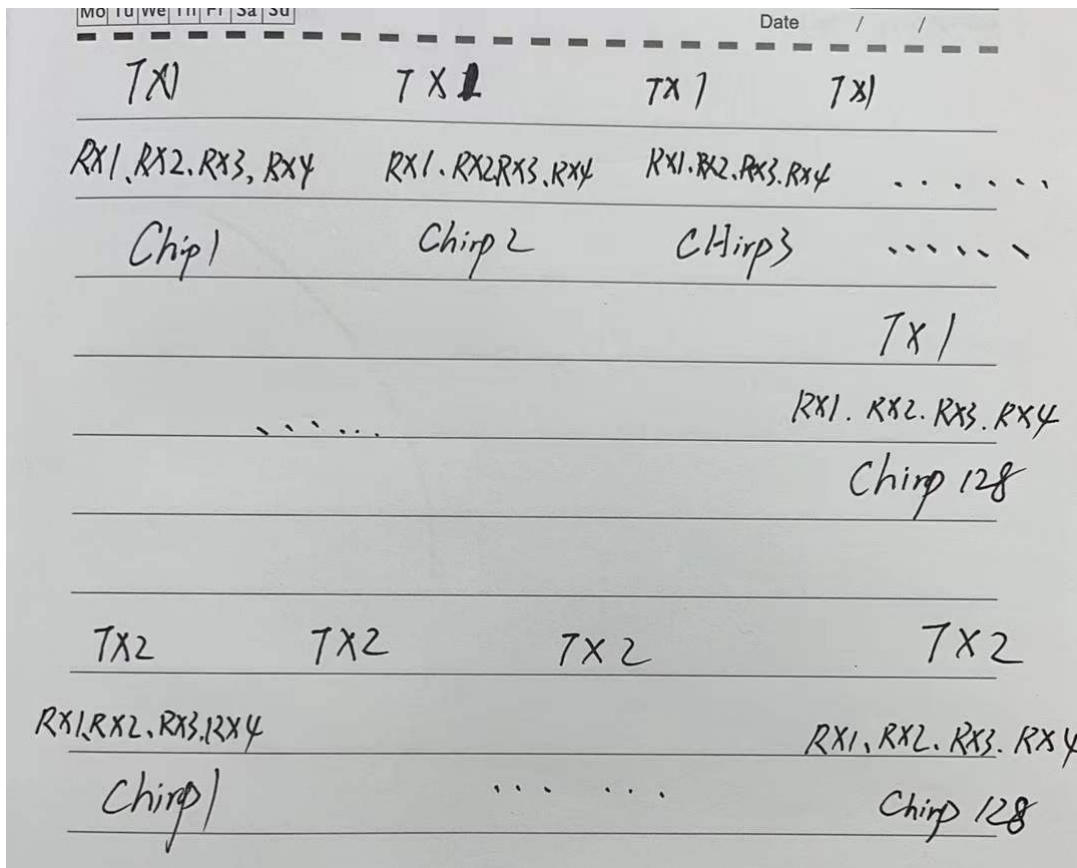 Mo Tu We Th Fr Sa Su Date / /
TX1 TX1 TX1 TX1
RX1、RX2、RX3、RX4 RX1.RX2RX3.RX4 RX1.RX2.RX3.RX4 ......
Chip1 Chirp2 CHirp3 ......
TX1
...... RX1. RX2. RX3. RX4
Chirp 128
TX2 TX2 TX2 TX2
RX1、RX2、RX3.RX4 RX1、RX2. RX3. RX4
Chirp1 ... ... Chirp 128